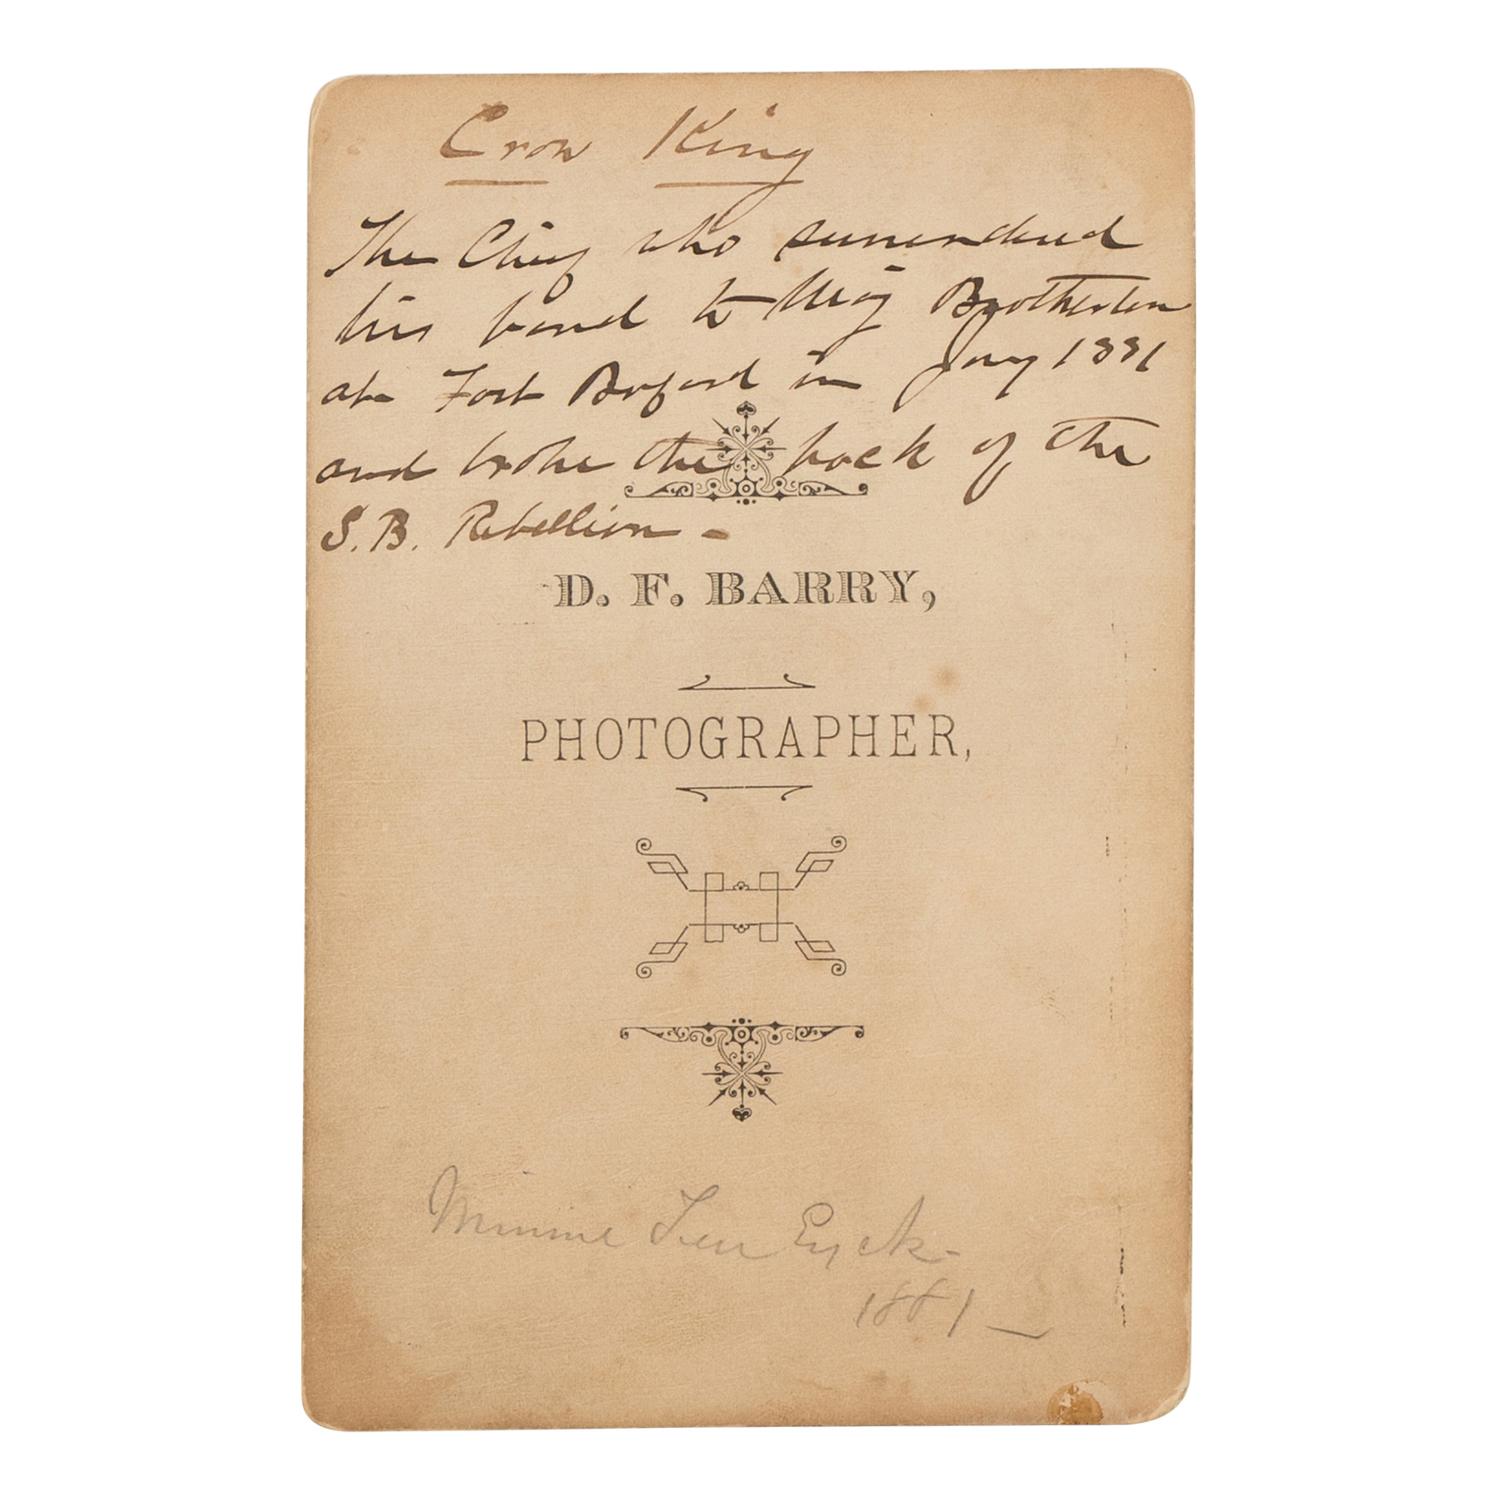 Crow King
The Chief who surrendered
his band to Maj Brotherton
at Fort Buford in Jany 1881
and broke the back of the
S.B. Rebellion -
D. F. BARRY,
PHOTOGRAPHER,
Minnie Ten Eyck-
1881 —